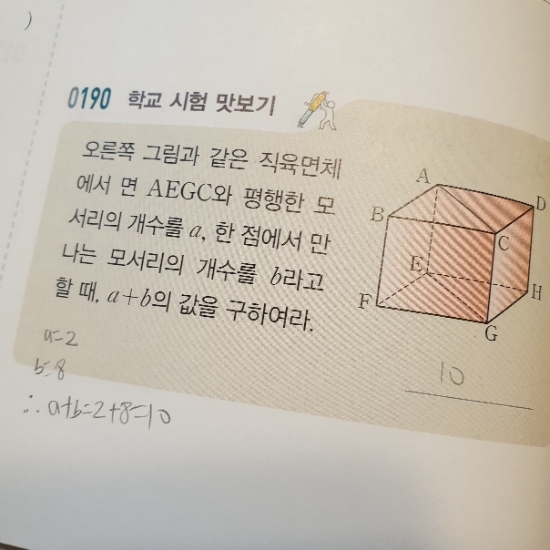 )
0190 학교 시험 맛보기
오른쪽 그림과 같은 직육면체
에서 면 AEGC와 평행한 모
서리의 개수를 a, 한 점에서 만
나는 모서리의 개수를 b라고
할 때, a+b의 값을 구하여라.
A
D
B
C
E
H
F
G
a=2
b=8
∴ a+b=2+8=10
10